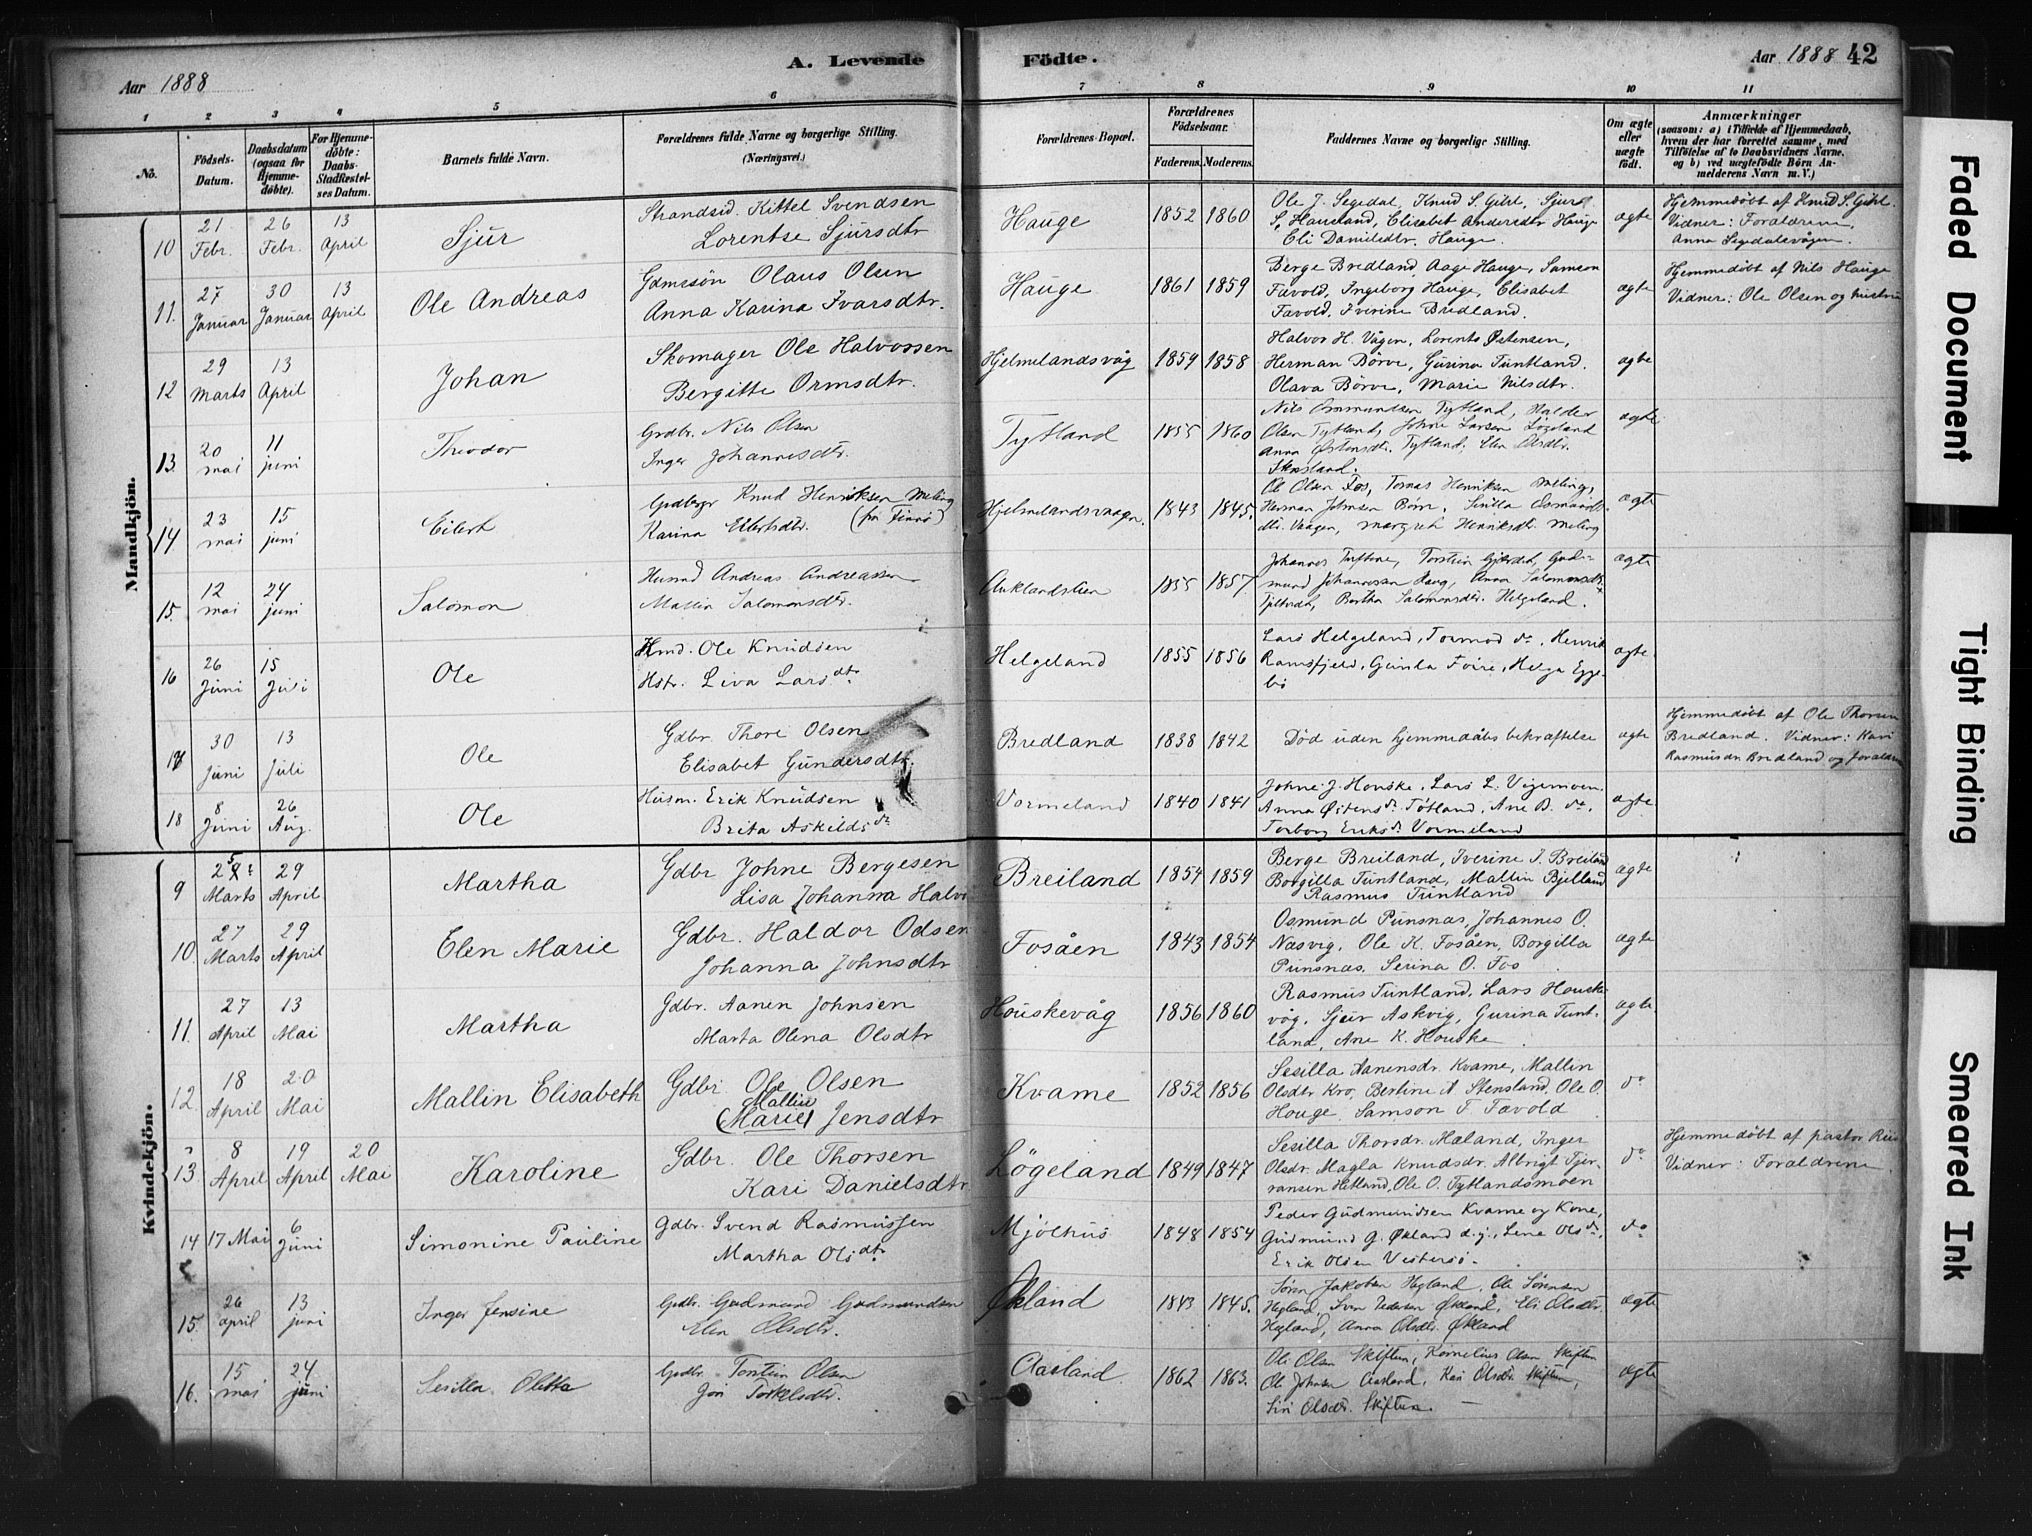 Aar 1888
A. Levende
Födte.
Aar 1888 42
1 2 3 4 5 6 7 8 9 10 11
No.
Födsels-Datum.
Daabsdatum (ogsaa for Hjemme-döbte).
For Hjemme-döbte: Daabs-Stadfestel-ses Datum.
Barnets fulde Navn.
Forældrenes fulde Navne og borgerlige Stilling.
(Næringsvei.)
Forældrenes Bopæl.
Forældrenes Födselsaar.
Faderens. Moderens.
Faddernes Navne og borgerlige Stilling.
Om ægte eller uægte födt.
Anmærkninger
(saasom: a) i Tilfælde af Hjemmedaab, hvem der har forrettet samme, med Tilföielse af to Daabsvidners Navne, og b) ved uægtefödte Börn Anmelderens Navn m. V.)
Mandkjön.
10 21 Febr. 26 Febr. 13 April Sjur
Strandsid. Kittel Svendsen
Lorentse Sjursdtr
Hauge 1852 1860
Ole J. Segedal, Knud S. Gilst, Sjur
S. Haueland, Elisabet Andersdtr Hauge
Eli Danilsdtr. Hauge.
ægte
Hjemmedøbt af Knud S. Gilst.
Vidner: Forældrene,
Anna Segedalsvågen.
11. 27 Januar 30 Januar 13 April Ole Andreas
Gdmssøn Olaus Olsen
Anna Karina Ivarsdtr.
Hauge 1861 1859
Berge Bredland, Aage Hauge, Samson
Favold, Ingeborg Hauge, Elisabet
Favold, Iverine Bredland.
ægte
Hjemmedøbt af Nils Hauge
Vidner: Ole Olsen og hustru
12 29 Marts 13 April Johan
Skomager Ole Halvorsen
Bergitte Ormsdtr.
Hjelmelandsvåg 1859 1858
Halvor H. Vågen, Lorents Østensen,
Herman Børve, Gurina Tuntland.
Olava Børve, Marie Nilsdtr.
ægte
13. 20 mai 11 juni Theodor
Grdbr. Nils Olsen
Inger Johannesdtr.
Tytland 1855 1860
Nils Osmundsen Tytland, Halder
Olsen Tytland, Johne Larsen Løgeland
Anna Østensdtr. Tytland, Elen Olsdtr.
ægte
14 23 mai 15 juni Eilert
Grdbrgr Knud Henriksen Meling
Karina Eilertsdtr. (fra Finnø)
Hjelmelandsvaagen. 1843 1845.
Ole Olsen Fos, Tomas Henriksen Meling,
Herman Johnsen Børve, Sesilla Osmunds
dtr. Vaagen, Margret Henriksdtr Meling
ægte
15. 12 mai 24 juni Salomon
Husmd Andreas Andreassen
Mallin Salomonsdtr.
Auklandslien 1855 1857
Johannes Tuftene, Torstein Gjilstdt, Gud-
mund Johannessen Haug, Anna Salomonsdtr.
Berthe Salomonsdtr. Helgeland.
ægte
16 26 Juni 15 Juli Ole
Hmd. Ole Knudsen
Hstr. Liva Larsdtr
Helgeland 1855 1856
Lars Helgeland, Tormod do, Henrik
Ramsfjeld, Gunla Foire, Helga Egge-
bø
ægte
17 30 Juni 13 Juli Ole
Gdbr. Thore Olsen
Elisabet Gundersdtr.
Bredland 1838 1842
Død uden hjemmedåbs bekræftelse
ægte
Hjemmedøbt af Ole Thorsen
Bredland. Vidner: Kari
Rasmusdr. Bredland og forældrene
18 8 Juni 26 Aug. Ole
Husm. Erik Knudsen
Brita Askildsdr
Vormeland 1840 1841
Johne J. Houske, Lars L. Vigemoen
Anna Østensdr. Tøtland, Ane B. do,
Torborg Eriksdr. Vormeland
ægte
Kvindekjön.
9 25 Marts 29 April Martha
Gdbr Johne Bergesen
Lisa Johanna Halvo
Breiland 1854 1859
Berge Breiland, Iverine J. Breiland
Borgilla Tuntland, Mallin Bjelland
Rasmus Tuntland
ægte
10. 27 Marts 29 April Elen Marie
Gdbr. Haldor Odsen
Johanna Johnsdtr
Fosåen 1843 1854
Osmund Punsnas, Johannes O.
Næsvig, Ole K. Fosåen, Borgilla
Punsnas, Serina O. Fos
ægte
11. 27 April 13 Mai Martha
Gdbr. Aanen Johnsen
Marta Olena Olsdtr
Houskevåg 1856 1860
Rasmus Tuntland, Lars Houske-
våg, Sjur Askvig, Gurina Tunt-
land, Ane K. Houske
ægte
12. 18 April 20 Mai Mallin Elisabeth
Gdbr Ole Olsen
Mallin
(Marie) Jensdtr
Kvame 1852 1856
Sesilla Aanensdr. Kvame, Mallin
Olsdtr Kro, Berline A Stensland, Ole O.
Houge, Samson F. Favold
do
13. 8 April 19 April 20 Mai Karoline
Gdbr. Ole Thorsen
Kari Danielsdtr
Løgeland 1849 1847
Sesilla Thorsdr. Mæland, Inger
Olsdr. Magla Knudsdr. Albrigt Tjer-
ransen Hetland, Ole O. Tytlandsmoen
do
Hjemmedøbt af pastor Riis
Vidner: Forældrene
14 17 Mai 6 Juni Simonine Pauline
Gdbr. Svend Rasmussen
Martha Olsdtr
Mjølhus 1848 1854
Peder Gudmundsen Kvame og Kone,
Gudmund G. Økland d.y., Lene Olsdr,
Erik Olsen Vestersø.
do
15. 26 april 13 juni Inger Jensine
Grdbr. Gudmund Gudmundsen
Elen Olsdtr.
Økland 1843 1845.
Søren Jakobsen Hegland, Ole Sørensen
Hegland, Sven Pedersen Økland, Eli Olsdtr.
Hegland, Anna Olsdtr. Økland
ægte
16. 15 mai 24 juni Sesilla Oletta
Grdbr. Torstein Olsen
Gjøri Torkelsdtr.
Aasland 1862 1863.
Ole Olsen Skiftun, Kornelius Olsen Skiftun
Ole Johnsen Aasland, Kari Olsdtr. Skiftun,
Siri Olsdtr. Skiftun.
ægte
Faded Document
Tight Binding
Smeared Ink